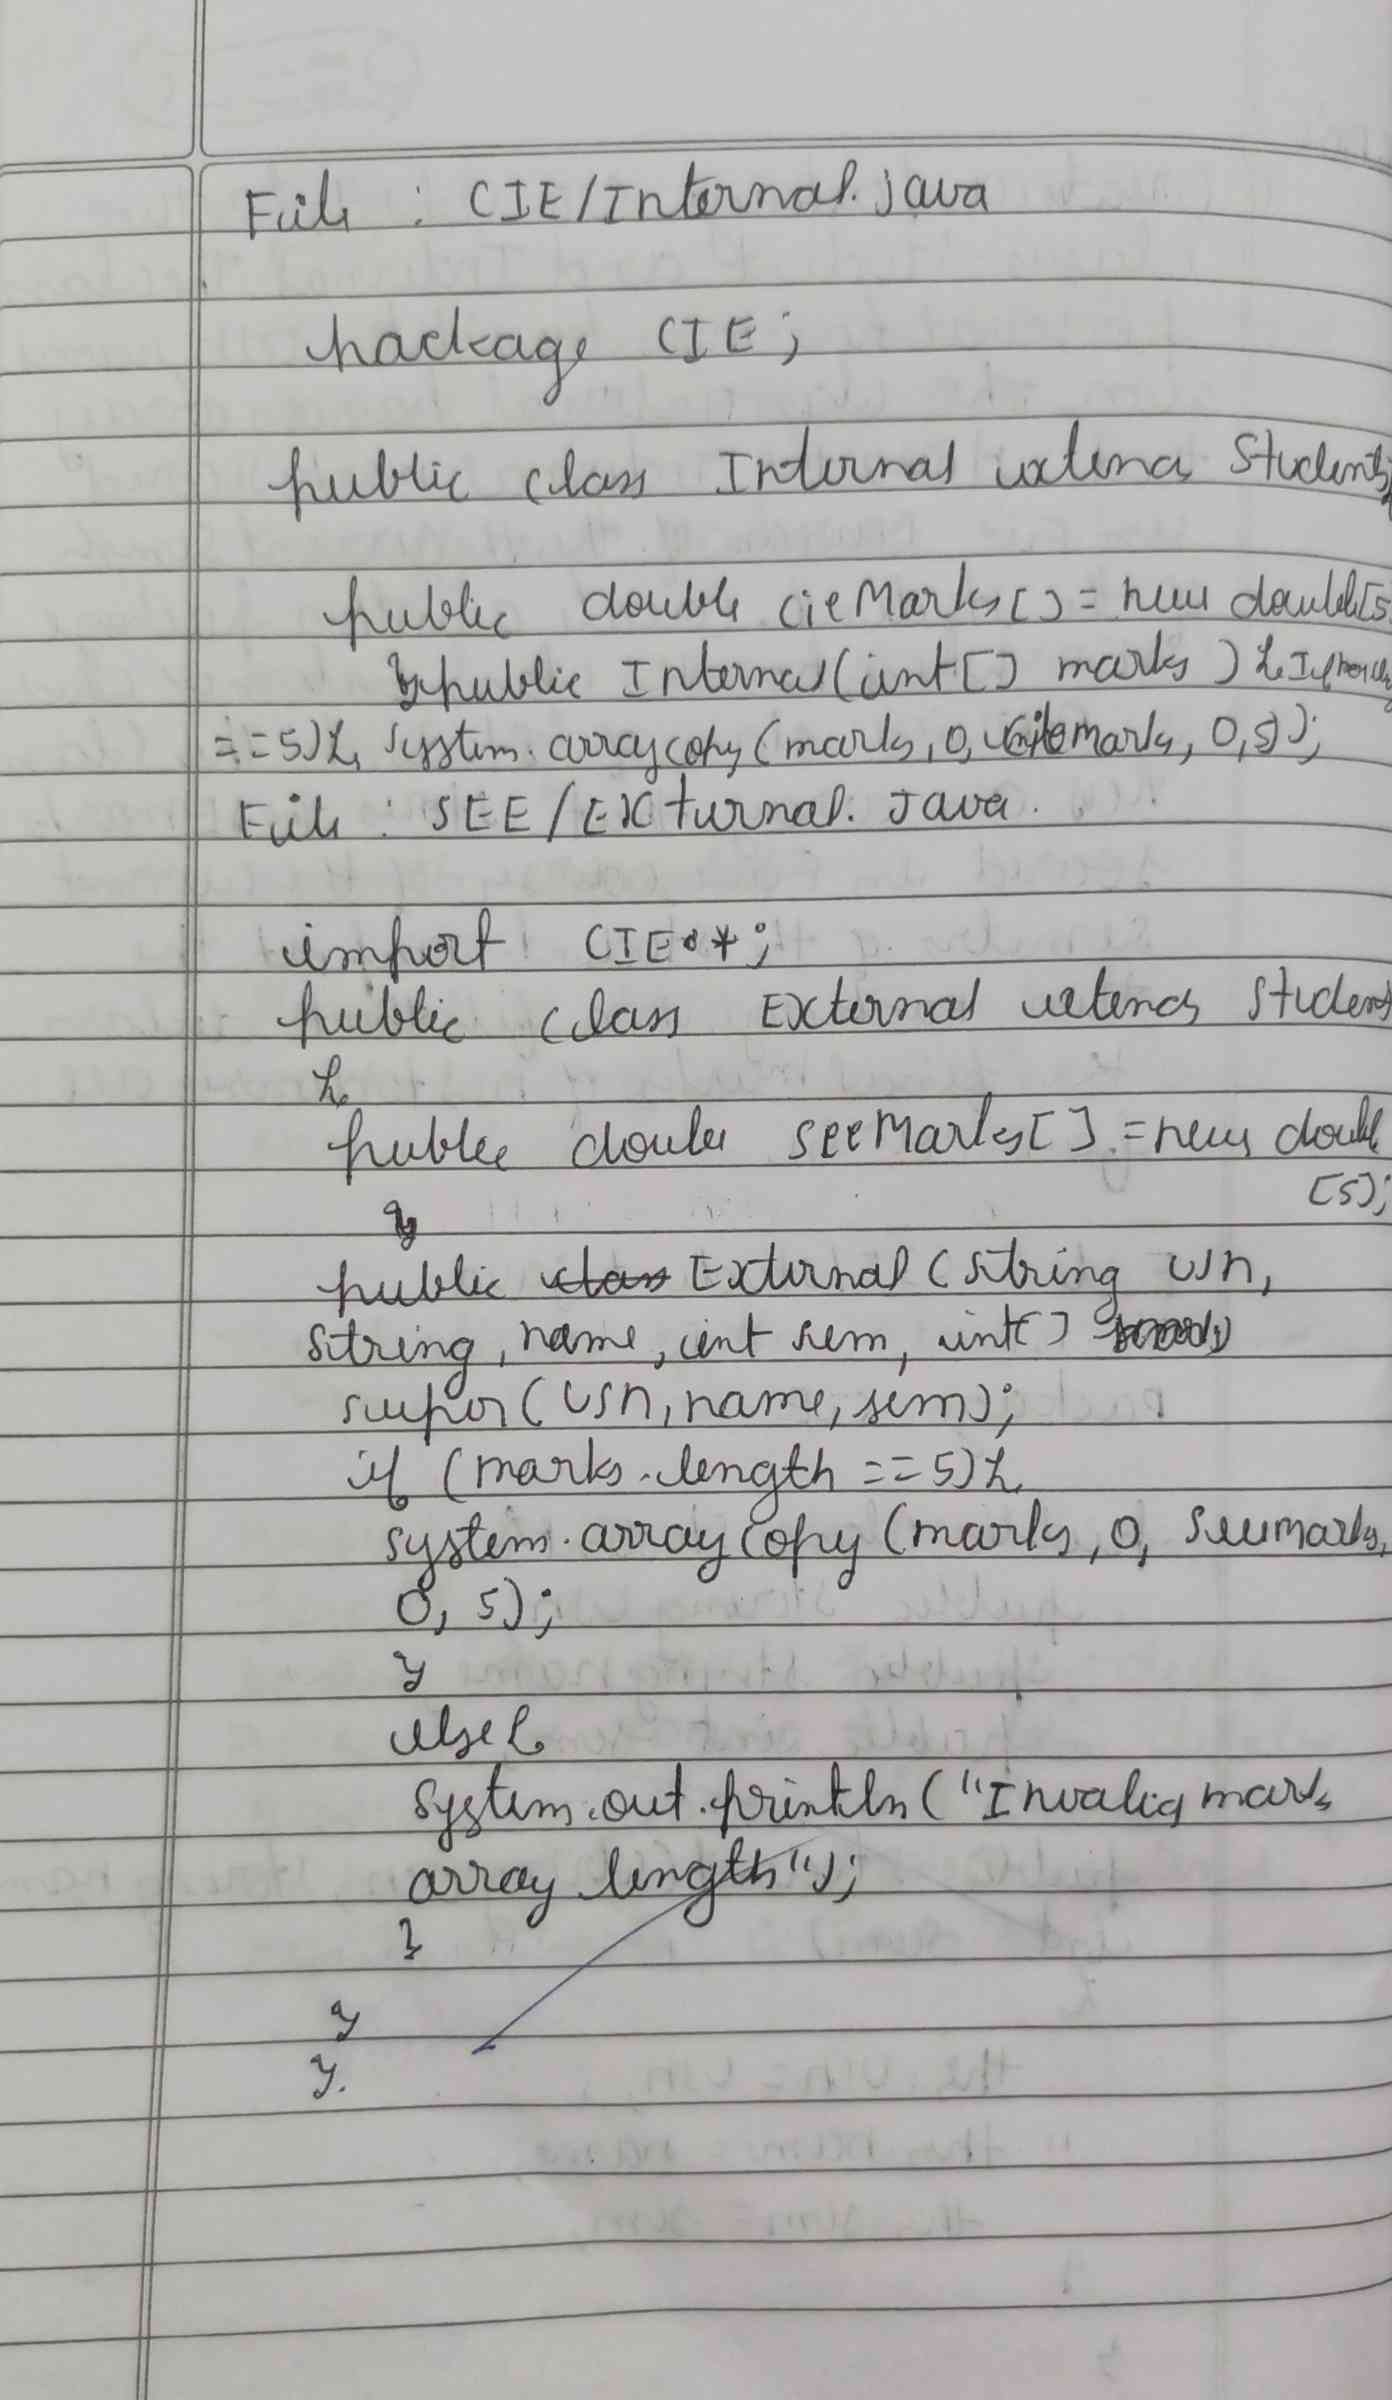 File : CIE/Internal.java
package CIE;
public class Internal extends Student{
public double cieMarks[] = new double[5
public Internal(int[] marks) { If
==5){ system.arraycopy(marks, 0, marks, 0,5);
File : SEE/External.java.
import CIE.*;
public class External extends Student
{
public double seeMarks[] = new double
[5];
}
public External(string usn,
string, name, int sem, int[]
super(usn, name, sem);
if (marks.length == 5){
system.arraycopy(marks, 0, seemarks,
0, 5);
}
else{
system.out.println("Invalid marks
array length");
}
}
}.